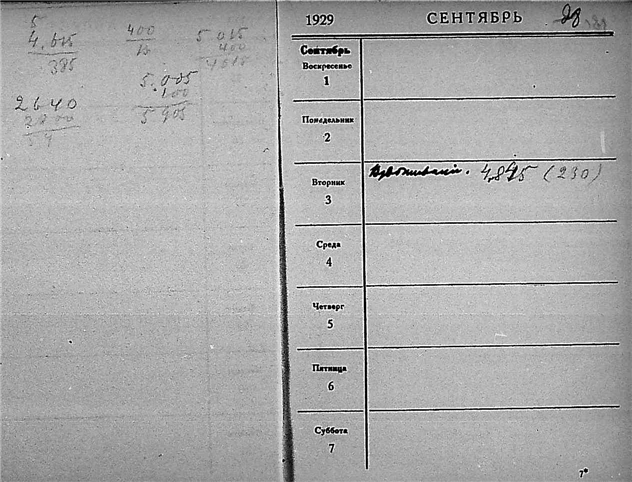 5
4,615
385
400
15
5 015
400
4615
5.005
100
2640
59
1929 СЕНТЯБРЬ
Сентябрь
Воскресенье
1
Понедельник
2
Вторник
3
4,845 (230)
Среда
4
Четверг
5
Пятница
6
Суббота
7
7*